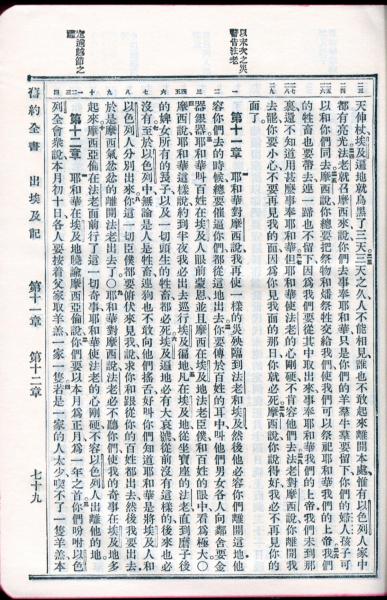 以末次之災警告法老
天伸杖埃及遍地就烏黑了三天三天之久人不能相見誰也不敢起來離開本處惟有以色列人家中
都有亮光法老就召摩西來說你們去事奉耶和華只是你們的羊羣牛羣要留下你們的婦人孩子可
以和你們同去摩西說你總要把祭物和燔祭牲交給我們使我們可以祭祀耶和華我們的上帝我們
的牲畜也要帶去連一蹄也不留下因為我們要從其中取出來事奉耶和華我們的上帝我們未到那
裏還不知道用甚麼事奉耶和華但耶和華使法老的心剛硬不肯容他們去法老對摩西說你離開我
去罷你要小心不要再見我的面因為你見我面的那日你就必死摩西說你說得好我必不再見你的
面了
第十一章 耶和華對摩西說我再使一樣的災殃臨到法老和埃及然後他必容你們離開這地他
容你們去的時候總要催逼你們都從這地出去你要傳於百姓的耳中叫他們男女各人向鄰舍要金
器銀器耶和華叫百姓在埃及人眼前蒙恩並且摩西在埃及地法老臣僕和百姓的眼中看為極大〇
摩西說耶和華這樣說約到半夜我必出去巡行埃及徧地凡在埃及地從坐寶座的法老直到磨子後
的婢女所有的長子以及一切頭生的牲畜都必死埃及遍地必有大哀號從前沒有這樣的後來也必
沒有至於以色列中無論是人是牲畜連狗也不敢向他們搖舌好叫你們知道耶和華是將埃及人和
以色列人分別出來你這一切臣僕都要俯伏來見我說求你和跟從你的百姓都出去然後我要出去
於是摩西氣忿忿的離開法老出去了〇耶和華對摩西說法老必不聽你們使我的奇事在埃及地多
起來摩西亞倫在法老面前行了這一切奇事耶和華使法老的心剛硬不容以色列人出離他的地
第十二章 耶和華在埃及地曉諭摩西亞倫說你們要以本月為正月為一年之首你們吩咐以色
列全會衆說本月初十日各人要按着父家取羊羔一家一隻若是一家的人太少喫不了一隻羊羔本
舊約全書 出埃及記 第十一章 第十二章 七十九